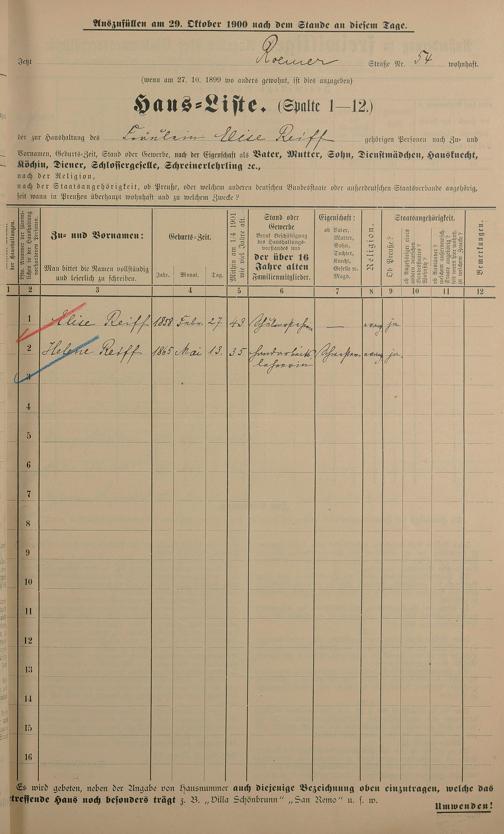 Auszufüllen am 29. Oktober 1900 nach dem Stande an diesem Tage.
Jetzt Roemer Straße Nr. 54 wohnhaft.
(wenn am 27. 10. 1899 wo anders gewohnt, ist dies anzugeben)
Haus-Liste. (Spalte 1—12.)
der zur Haushaltung des Fräulein Elise Reiff gehörigen Personen nach Zu- und
Vornamen, Geburts-Zeit, Stand oder Gewerbe, nach der Eigenschaft als Vater, Mutter, Sohn, Dienstmädchen, Hausknecht,
Köchin, Diener, Schlossergeselle, Schreinerlehrling ꝛc.,
nach der Religion,
nach der Staatsangehörigkeit, ob Preuße, oder welchem anderen deutschen Bundesstaate oder außerdeutschen Staatsverbande angehörig,
seit wann in Preußen überhaupt wohnhaft und zu welchem Zwecke?
der Haushaltungen.
Zu- und Vornamen:
Man bittet die Namen vollständig
und leserlich zu schreiben.
Geburts-Zeit.
Jahr. Monat. Tag.
Mithin am 1/4 1901
wie viel Jahre alt.
Stand oder
Gewerbe
Beruf Beschäftigung
des Haushaltungs-
vorstandes und
der über 16
Jahre alten
Familienmitglieder.
Eigenschaft:
ob Vater,
Mutter,
Sohn,
Tochter,
Knecht,
Geselle o.
Magd.
Religion.
Staatsangehörigkeit.
Ob Preuße?
Bemerkungen.
1 2 3 4 5 6 7 8 9 10 11 12
1 Elise Reiff 1858 Febr. 27 43 — evang ja
2 Helene Reiff 1865 Mai 13. 35 Handarbeits Schwester evang ja
lehrerin
3
4
5
6
7
8
9
10
11
12
13
14
15
16
Es wird gebeten, neben der Angabe von Hausnummer auch diejenige Bezeichnung oben einzutragen, welche das
treffende Haus noch besonders trägt z. B. „Villa Schönbrunn" „San Remo" u. s. w.
Umwenden!